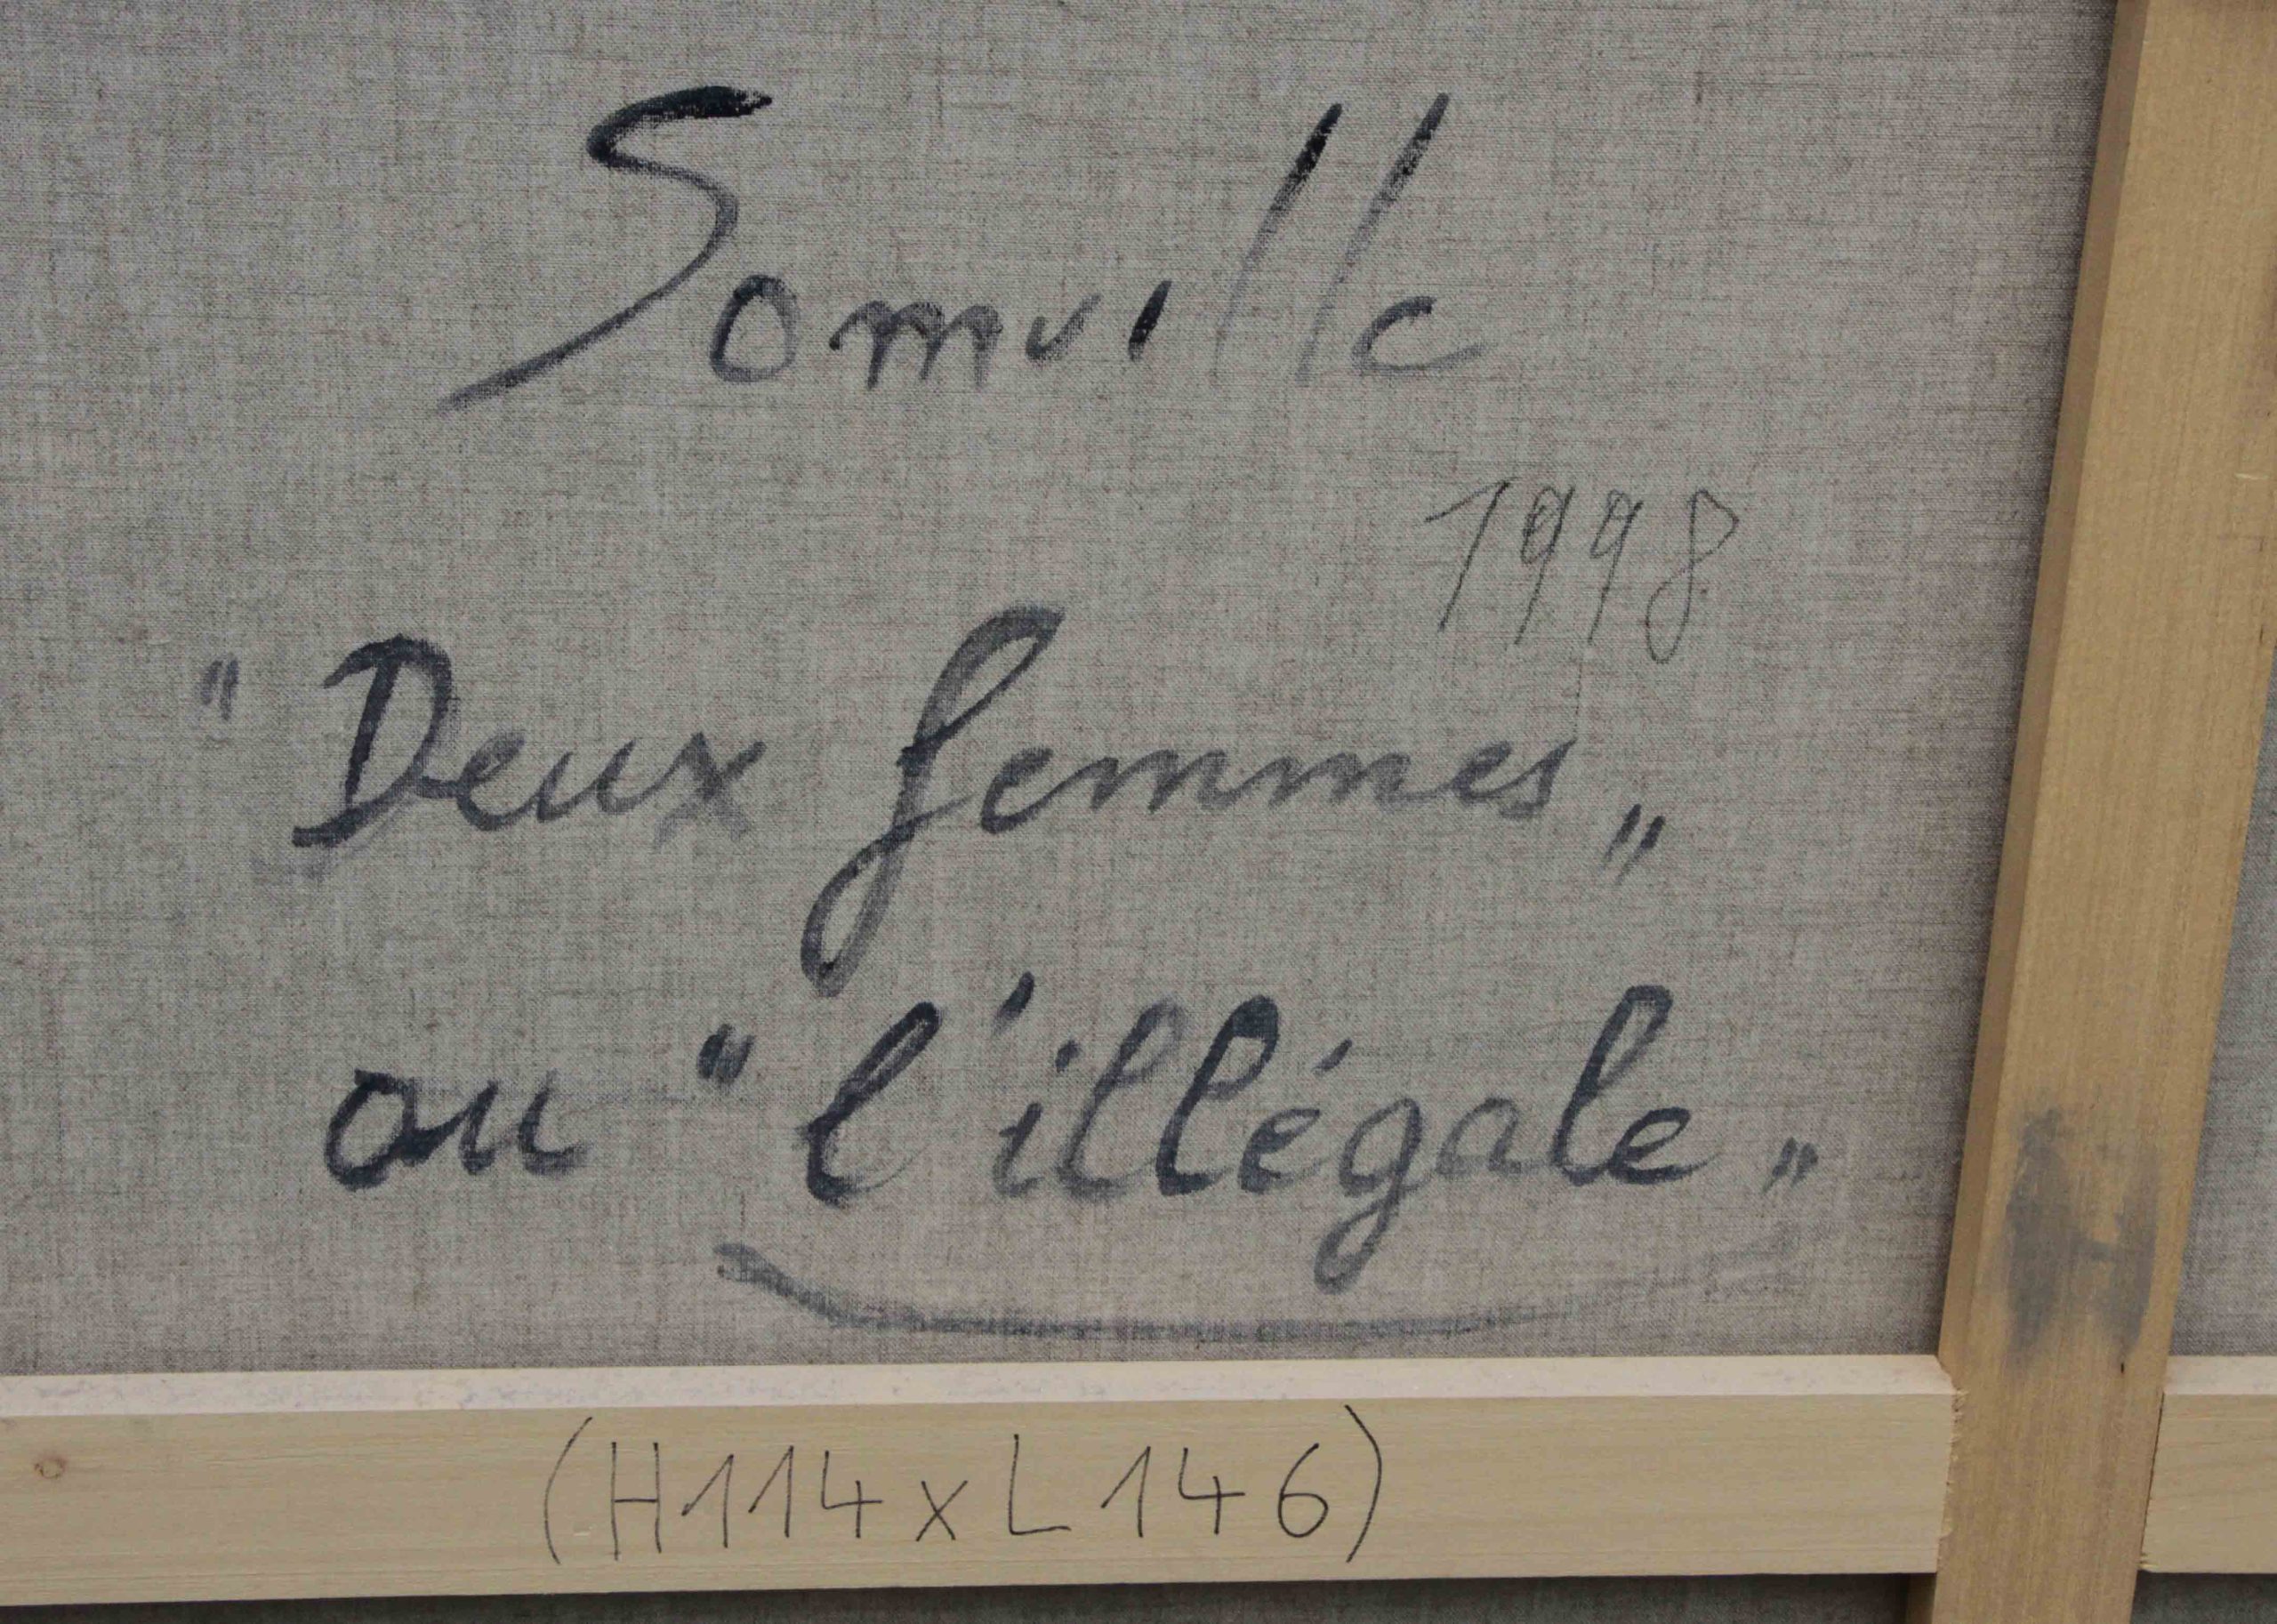 Somville
1998
"Deux femmes„
ou "l'illégale„
(H114 x L 146)